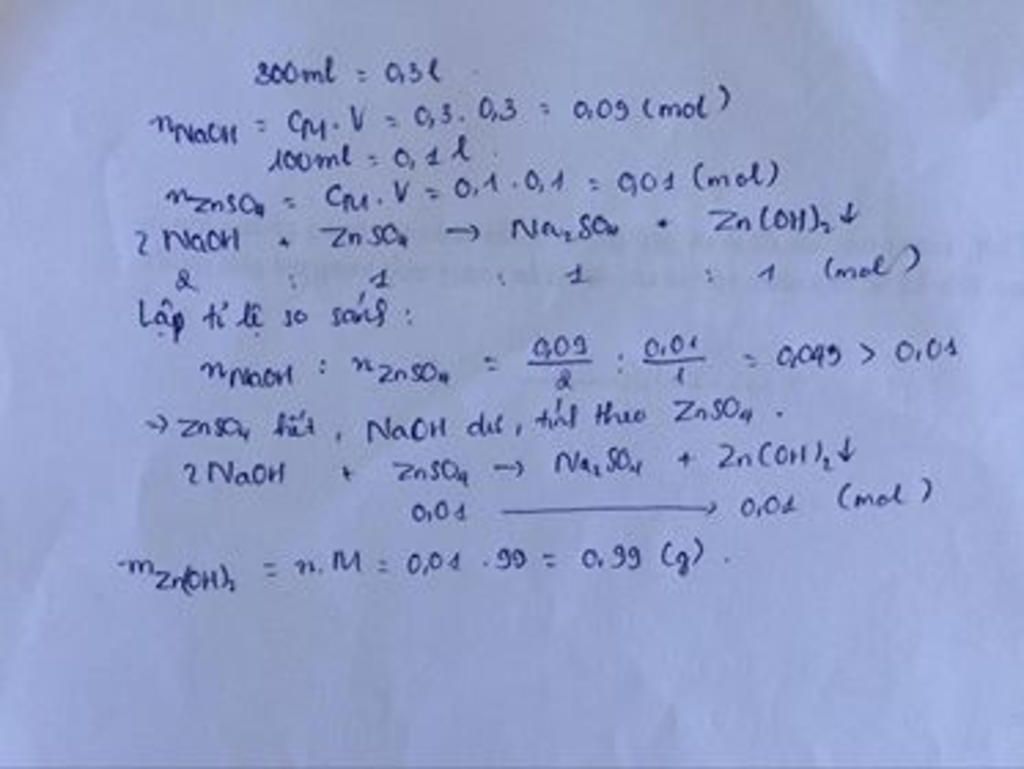 300ml = 0,3l
nNaOH = CM.V = 0,3.0,3 = 0,09 (mol)
100ml = 0,1l
nZnSO4 = CM.V = 0,1.0,1 = 0,01 (mol)
2NaOH + ZnSO4 → Na2SO4 + Zn(OH)2↓
2 : 1 : 1 : 1 (mol)
Lập tỉ lệ so sánh :
nNaOH : nZnSO4 = 0,09/2 : 0,01/1 = 0,049 > 0,01
→ ZnSO4 hết, NaOH dư, tính theo ZnSO4.
2NaOH + ZnSO4 → Na2SO4 + Zn(OH)2↓
0,01 → 0,01 (mol)
mZn(OH)2 = n.M = 0,01.99 = 0.99 (g).